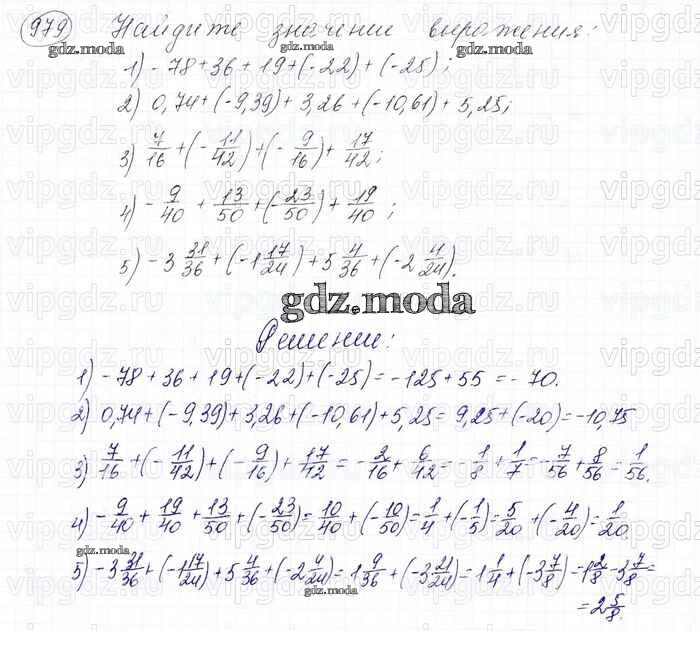 979) Найдите значение выражения:
gdz.moda gdz.moda gdz.moda
1) -78+36+19+(-22)+(-25);
2) 0,74+(-9,39)+3,26+(-10,61)+5,25;
3) 7/16+(-11/42)+(-9/16)+17/42;
4) -9/40+13/50+(-23/50)+19/40;
5) -3 31/36+(-1 17/24)+5 4/36+(-2 4/24).
gdz.moda
Решение:
1) -78+36+19+(-22)+(-25)=-125+55=-70.
2) 0,74+(-9,39)+3,26+(-10,61)+5,25=9,25+(-20)=-10,75
3) 7/16+(-11/42)+(-9/16)+17/42=-2/16+6/42=-1/8+1/7=-7/56+8/56=1/56.
gdz.moda
4) -9/40+19/40+13/50+(-23/50)=10/40+(-10/50)=1/4+(-1/5)=5/20+(-4/20)=1/20.
gdz.moda gdz.moda
5) -3 31/36+(-1 17/24)+5 4/36+(-2 4/24)=1 9/36+(-3 21/24)=1 1/4+(-3 7/8)=1 2/8-3 7/8=
=2 5/8.
gdz.moda gdz.moda